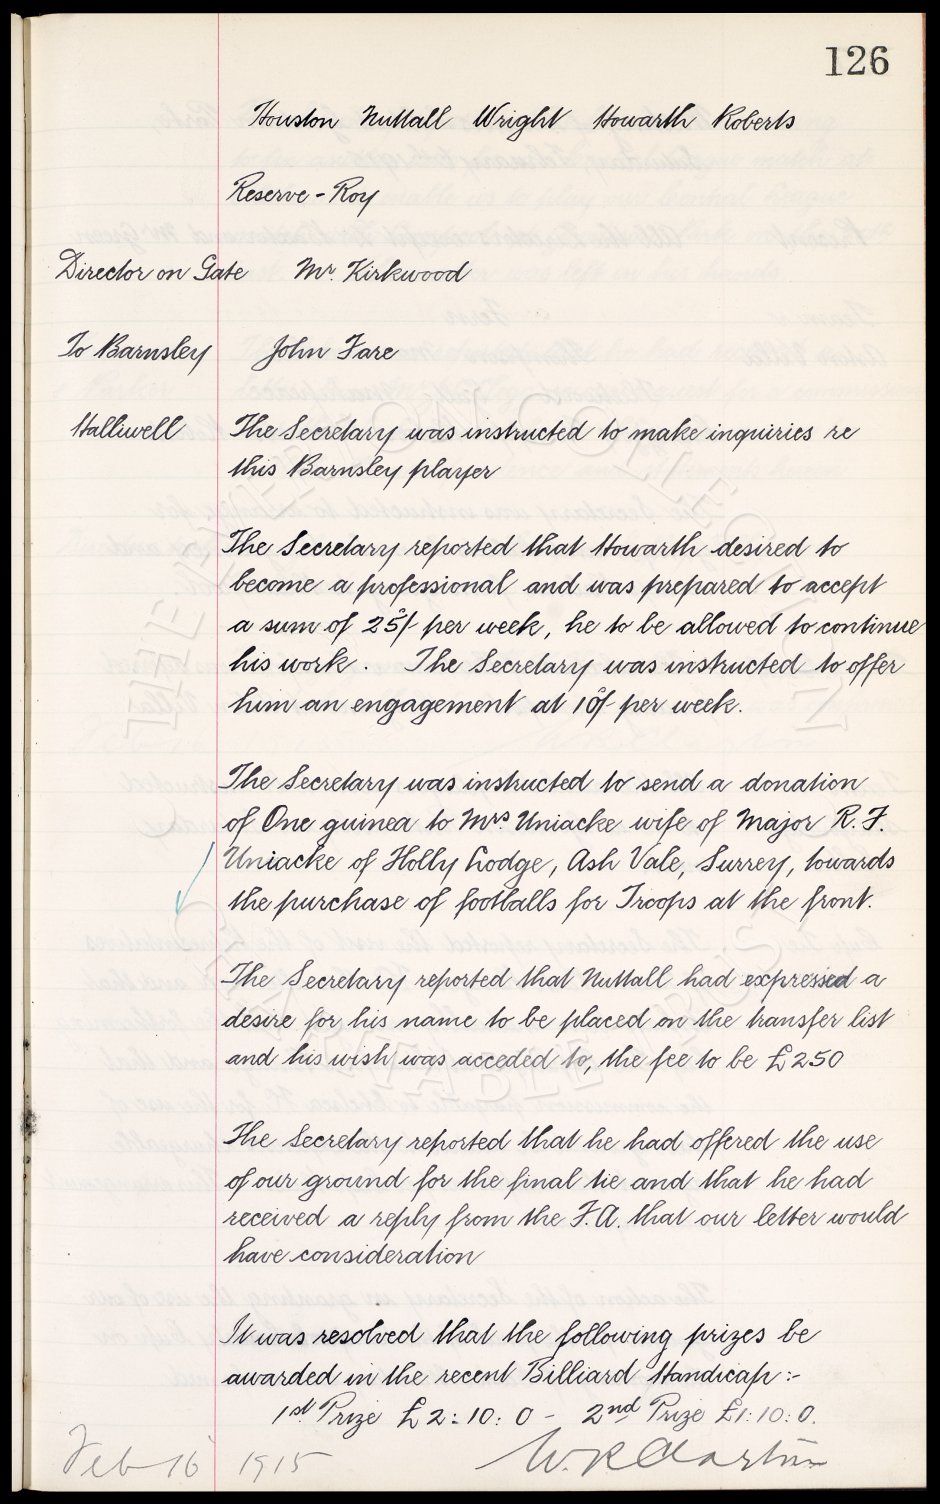 126
Houston Nuttall Wright Howarth Roberts
Reserve - Roy
Director on Gate Mr. Kirkwood
To Barnsley John Fare
Halliwell The Secretary was instructed to make inquiries re
this Barnsley player
The Secretary reported that Howarth desired to
become a professional and was prepared to accept
a sum of 25s/- per week, he to be allowed to continue
his work. The Secretary was instructed to offer
him an engagement at 10s/- per week.
The Secretary was instructed to send a donation
of One guinea to Mrs. Uniacke wife of Major R. F.
Uniacke of Holly Lodge, Ash Vale, Surrey, towards
the purchase of footballs for Troops at the front.
The Secretary reported that Nuttall had expressed a
desire for his name to be placed on the transfer list
and his wish was acceded to, the fee to be £250
The Secretary reported that he had offered the use
of our ground for the final tie and that he had
received a reply from the F.A. that our letter would
have consideration
It was resolved that the following prizes be
awarded in the recent Billiard Handicap:-
1st Prize £2:10:0 - 2nd Prize £1:10:0.
Feb 16 1915 W.R. Clayton
THE EVERTON COLLECTION
CHARITABLE TRUST